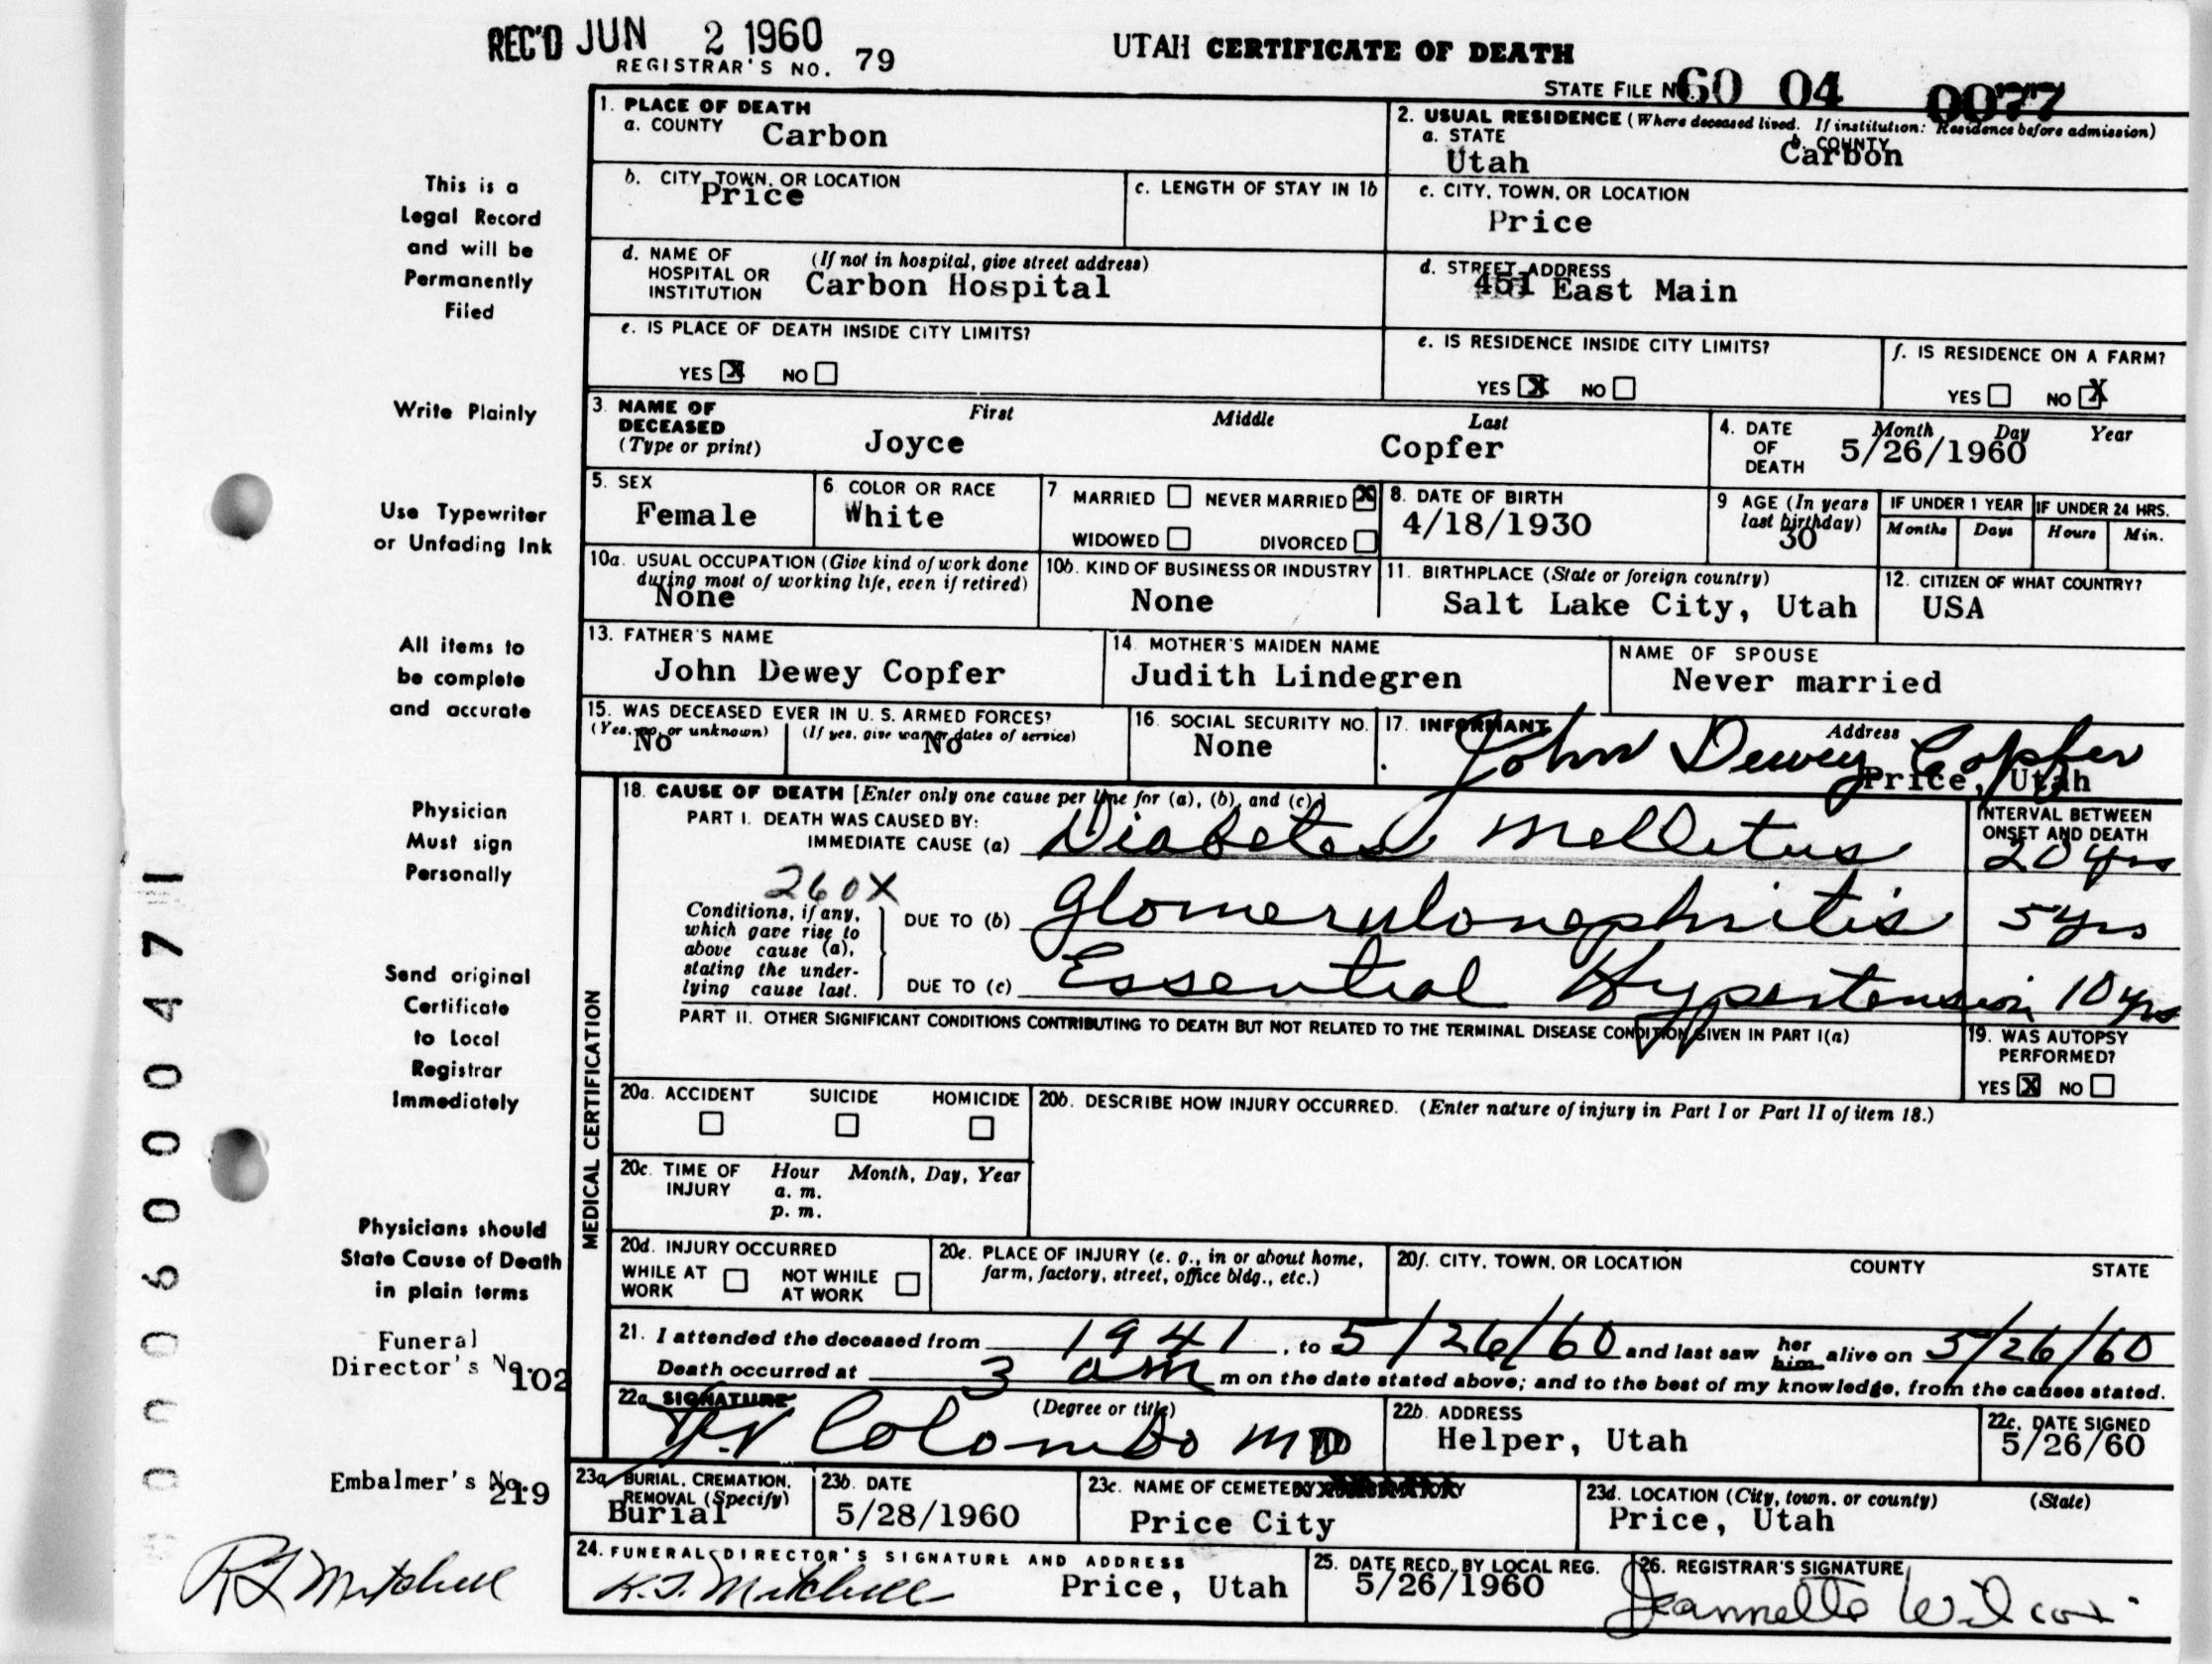 REC'D JUN 2 1960
REGISTRAR'S NO. 79
UTAH CERTIFICATE OF DEATH
STATE FILE NO. 60 04 0077
This is a
Legal Record
and will be
Permanently
Filed
Write Plainly
Use Typewriter
or Unfading Ink
All items to
be complete
and accurate
Physician
Must sign
Personally
Send original
Certificate
to Local
Registrar
Immediately
Physicians should
State Cause of Death
in plain terms
Funeral
Director's No. 102
Embalmer's No. 219
R J Mitchell
000600471
1. PLACE OF DEATH
a. COUNTY Carbon
2. USUAL RESIDENCE (Where deceased lived. If institution: Residence before admission)
a. STATE Utah b. COUNTY Carbon
b. CITY, TOWN, OR LOCATION Price
c. LENGTH OF STAY IN 1b
c. CITY, TOWN, OR LOCATION Price
d. NAME OF HOSPITAL OR INSTITUTION (If not in hospital, give street address) Carbon Hospital
d. STREET ADDRESS 451 East Main
e. IS PLACE OF DEATH INSIDE CITY LIMITS?
YES X NO
e. IS RESIDENCE INSIDE CITY LIMITS?
YES X NO
f. IS RESIDENCE ON A FARM?
YES NO X
3. NAME OF DECEASED (Type or print) First Middle Last
Joyce Copfer
4. DATE OF DEATH Month Day Year
5/26/1960
5. SEX Female
6. COLOR OR RACE White
7. MARRIED NEVER MARRIED X
WIDOWED DIVORCED
8. DATE OF BIRTH 4/18/1930
9. AGE (In years last birthday) 30
IF UNDER 1 YEAR Months Days
IF UNDER 24 HRS. Hours Min.
10a. USUAL OCCUPATION (Give kind of work done during most of working life, even if retired) None
10b. KIND OF BUSINESS OR INDUSTRY None
11. BIRTHPLACE (State or foreign country) Salt Lake City, Utah
12. CITIZEN OF WHAT COUNTRY? USA
13. FATHER'S NAME John Dewey Copfer
14. MOTHER'S MAIDEN NAME Judith Lindegren
NAME OF SPOUSE Never married
15. WAS DECEASED EVER IN U. S. ARMED FORCES?
(Yes, no, or unknown) No (If yes, give war or dates of service) No
16. SOCIAL SECURITY NO. None
17. INFORMANT Address
John Dewey Copfer
Price, Utah
MEDICAL CERTIFICATION
18. CAUSE OF DEATH [Enter only one cause per line for (a), (b), and (c).]
INTERVAL BETWEEN ONSET AND DEATH
PART I. DEATH WAS CAUSED BY:
IMMEDIATE CAUSE (a) Diabetes Melletus 20 yrs
260X
Conditions, if any, which gave rise to above cause (a), stating the underlying cause last.
DUE TO (b) Glomerulonephritis 5 yrs
DUE TO (c) Essential Hypertension 10 yrs
PART II. OTHER SIGNIFICANT CONDITIONS CONTRIBUTING TO DEATH BUT NOT RELATED TO THE TERMINAL DISEASE CONDITION GIVEN IN PART I(a)
19. WAS AUTOPSY PERFORMED?
YES X NO
20a. ACCIDENT SUICIDE HOMICIDE
20b. DESCRIBE HOW INJURY OCCURRED. (Enter nature of injury in Part I or Part II of item 18.)
20c. TIME OF INJURY Hour a. m. p. m. Month, Day, Year
20d. INJURY OCCURRED
WHILE AT WORK NOT WHILE AT WORK
20e. PLACE OF INJURY (e. g., in or about home, farm, factory, street, office bldg., etc.)
20f. CITY, TOWN, OR LOCATION COUNTY STATE
21. I attended the deceased from 1941, to 5/26/60 and last saw her him alive on 5/26/60
Death occurred at 3 am m on the date stated above; and to the best of my knowledge, from the causes stated.
22a. SIGNATURE (Degree or title)
Colombo MD
22b. ADDRESS Helper, Utah
22c. DATE SIGNED 5/26/60
23a. BURIAL, CREMATION, REMOVAL (Specify) Burial
23b. DATE 5/28/1960
23c. NAME OF CEMETERY Price City
23d. LOCATION (City, town, or county) (State) Price, Utah
24. FUNERAL DIRECTOR'S SIGNATURE AND ADDRESS
R. J. Mitchell Price, Utah
25. DATE RECD. BY LOCAL REG. 5/26/1960
26. REGISTRAR'S SIGNATURE
Jeannette Wilcox